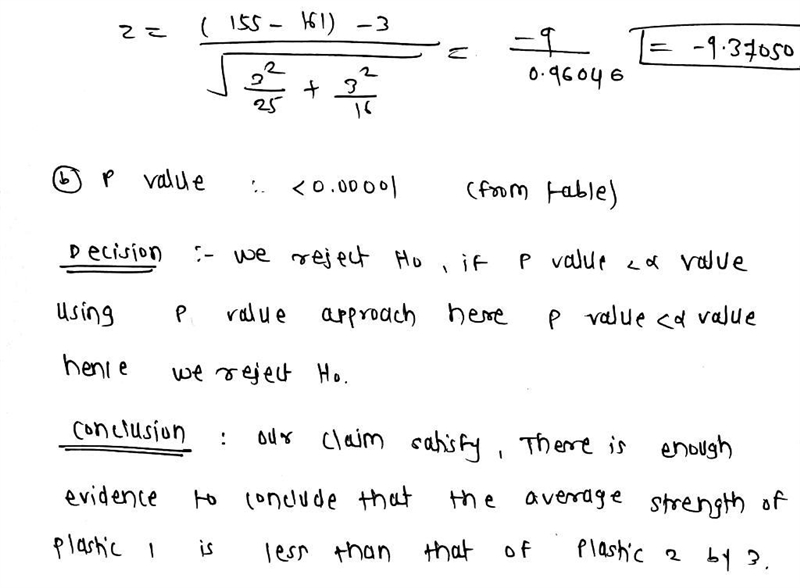 z = ( 155 - 161) - 3 / √ 3² / 25 + 3² / 16 = -9 / 0.96046 = -9.37050
(b) P value :. <0.00001 (from table)
Decision :- we reject H₀, if P value < α value
using P value approach here P value < α value
hence we reject H₀.
Conclusion : our claim satisfy, There is enough
evidence to conclude that the average strength of
plastic 1 is less than that of Plastic 2 by 3.